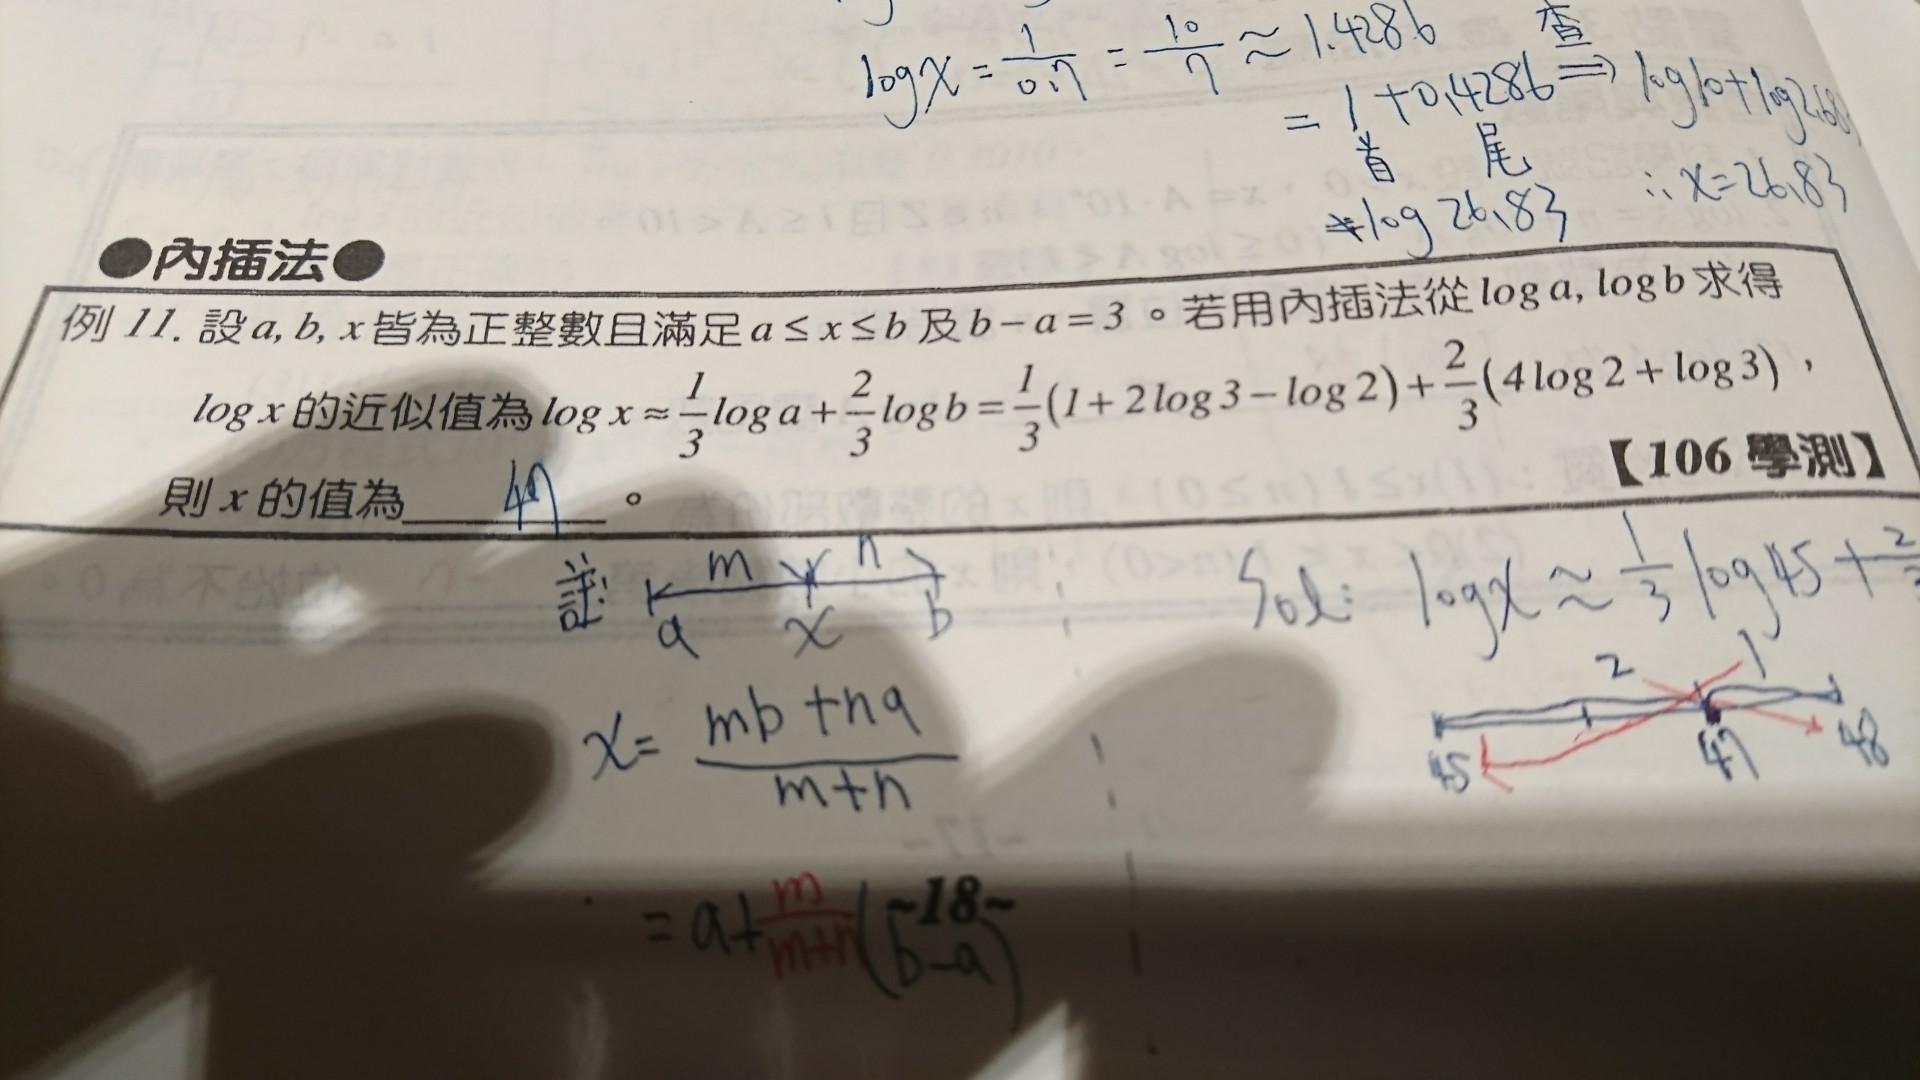 logx = 1/0.7 = 10/7 ≈ 1.4286 查
= 1 + 0.4286 ⇒ log10 + log2.68
首 尾
log 26.83 ∴ x = 26.83
●內插法●
例 11. 設 a, b, x 皆為正整數且滿足 a ≤ x ≤ b 及 b − a = 3。若用內插法從 log a, log b 求得
log x 的近似值為 log x ≈ 1/3 log a + 2/3 log b = 1/3 (1 + 2 log 3 − log 2) + 2/3 (4 log 2 + log 3),
【106 學測】
則 x 的值為 47 。
註: m n
a x b
x = (mb + na)/(m + n)
= a + m/(m+n) (b − a)
Sol: logx ≈ 1/3 log45 + 2
2 1
45 47 48
~18~